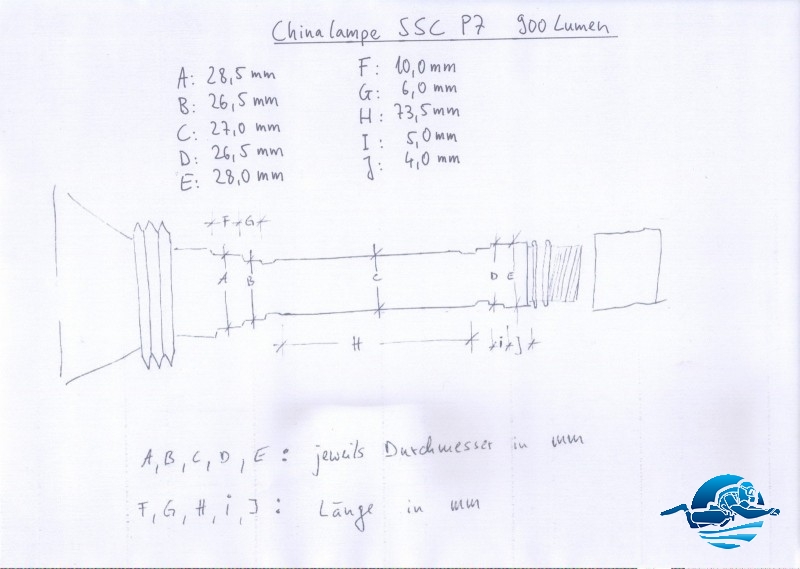 Chinalampe SSC P7 900 Lumen
A: 28,5 mm
B: 26,5 mm
C: 27,0 mm
D: 26,5 mm
E: 28,0 mm
F: 10,0 mm
G: 6,0 mm
H: 73,5 mm
I: 5,0 mm
J: 4,0 mm
F G
A B C D E
H i J
A, B, C, D, E: jeweils Durchmesser in mm
F, G, H, i, J: Länge in mm